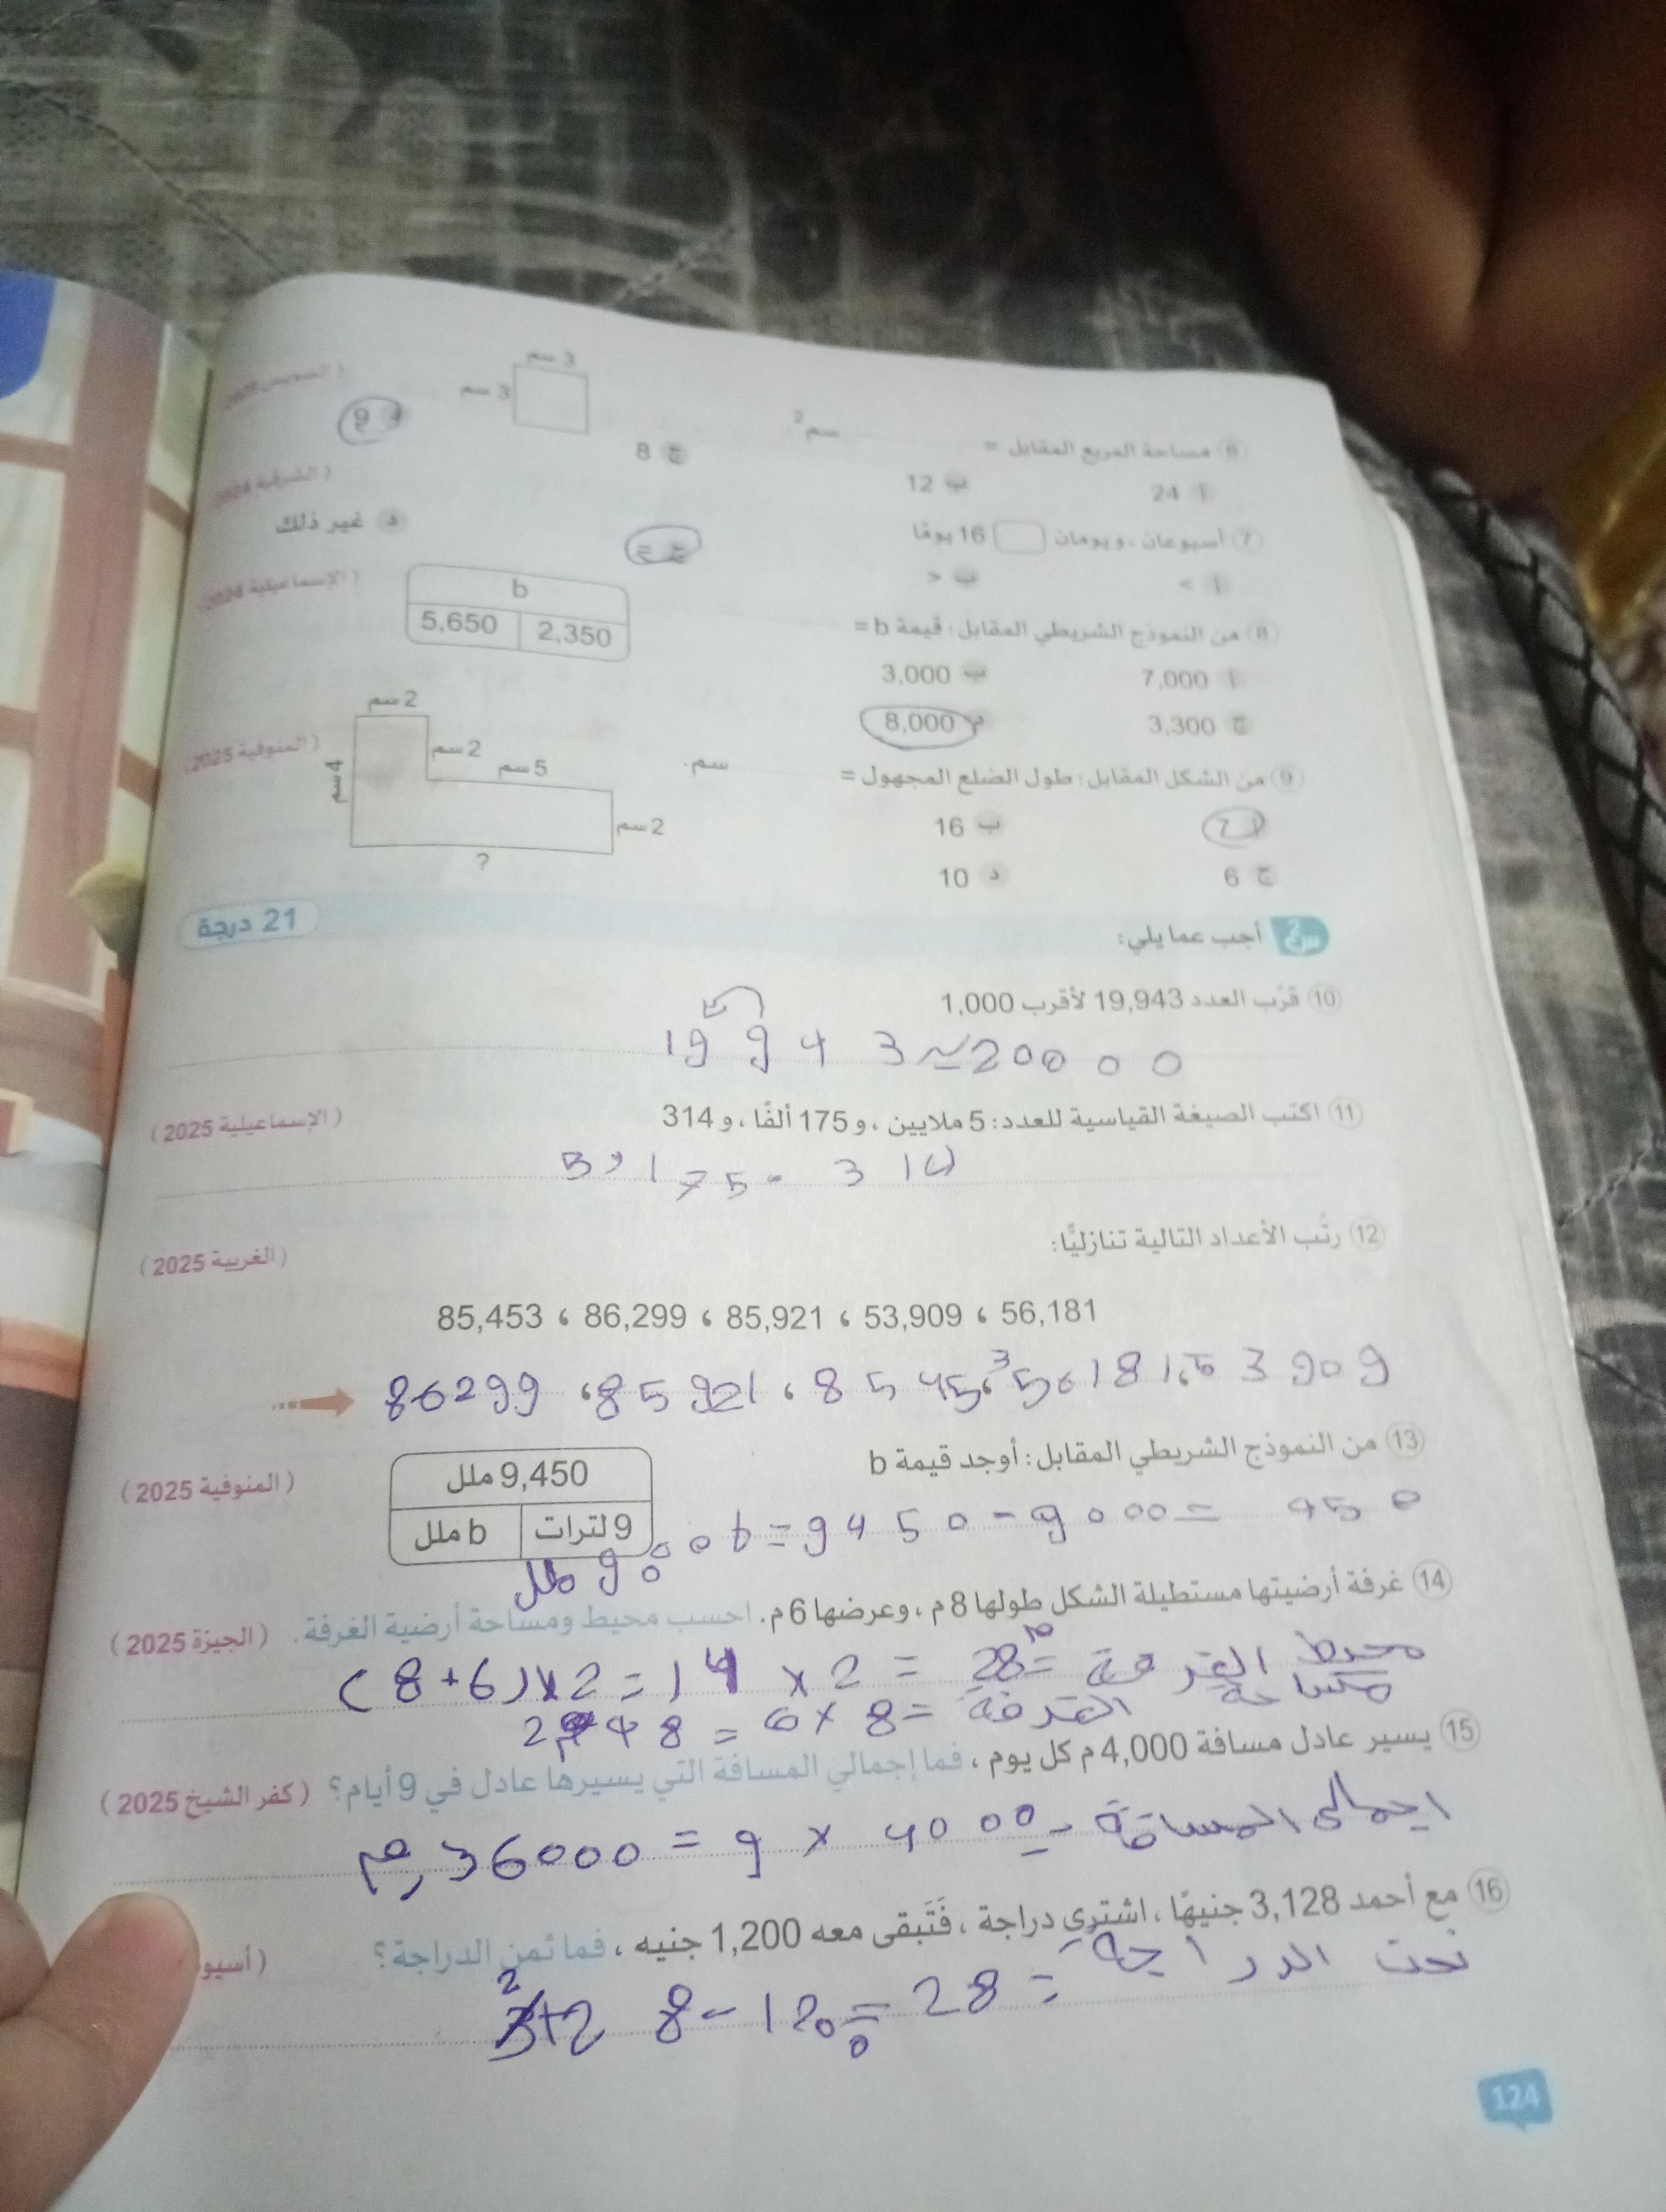 3 سم
3 سم
6 مساحة المربع المقابل = سم²
أ 24 ب 12 ج 8 د 9
7 أسبوعان، ويومان 16 يومًا
أ > ب < ج = د غير ذلك
8 من النموذج الشريطي المقابل: قيمة b =
b
5,650 2,350
أ 7,000 ب 3,000
ج 3,300 د 8,000
9 من الشكل المقابل: طول الضلع المجهول = سم.
(المنوفية 2025)
2 سم
4 سم
2 سم
5 سم
2 سم
?
أ 7 ب 16
ج 6 د 10
س2 أجب عما يلي:
21 درجة
10 قرب العدد 19,943 لأقرب 1,000
19943 ≈ 20000
11 اكتب الصيغة القياسية للعدد: 5 ملايين، و175 ألفًا، و314
(الإسماعيلية 2025)
5,175,314
12 رتِّب الأعداد التالية تنازليًّا:
(الغربية 2025)
85,453 ، 86,299 ، 85,921 ، 53,909 ، 56,181
86299 ، 85921 ، 85453 ، 56181 ، 53909
13 من النموذج الشريطي المقابل: أوجد قيمة b
(المنوفية 2025)
9,450 ملل
9 لترات b ملل
9000 ملل
b = 9450 - 9000 = 450
14 غرفة أرضيتها مستطيلة الشكل طولها 8 م، وعرضها 6 م. احسب محيط ومساحة أرضية الغرفة. (الجيزة 2025)
محيط الغرفة = 28 م = 2 × 14 = 2 × (8+6)
مساحة الغرفة = 8 × 6 = 48 م2
15 يسير عادل مسافة 4,000 م كل يوم، فما إجمالي المسافة التي يسيرها عادل في 9 أيام؟ (كفر الشيخ 2025)
اجمالى المسافة = 4000 × 9 = 36000 م
16 مع أحمد 3,128 جنيهًا، اشترى دراجة، فَتَبقى معه 1,200 جنيه، فما ثمن الدراجة؟
الدراجة = 28 = 1200 -
124